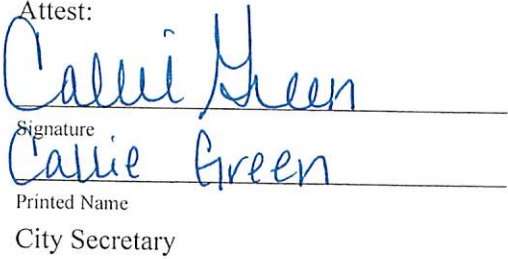 Attest:
Callie Green
Signature
Callie Green
Printed Name
City Secretary